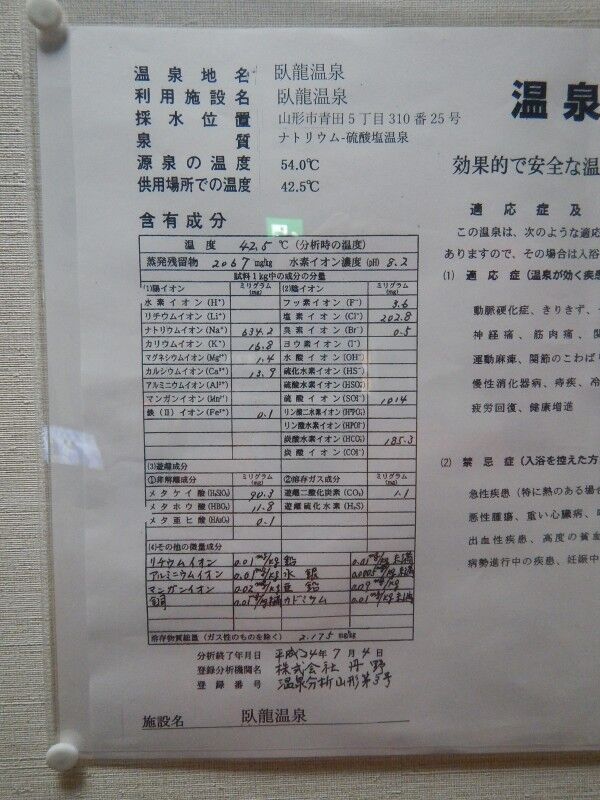 温泉地名 臥龍温泉
利用施設名 臥龍温泉
採水位置 山形市青田5丁目310番25号
泉質 ナトリウム-硫酸塩温泉
源泉の温度 54.0℃
供用場所での温度 42.5℃
含有成分
温度 42.5 ℃ (分析時の温度)
蒸発残留物 2067 mg/kg 水素イオン濃度 (pH) 8.2
試料1kg中の成分の分量
(1)陽イオン ミリグラム(mg) (2)陰イオン ミリグラム(mg)
水素イオン(H⁺) フッ素イオン(F⁻) 3.6
リチウムイオン(Li⁺) 塩素イオン(Cl⁻) 202.8
ナトリウムイオン(Na⁺) 634.2 臭素イオン(Br⁻) 0.5
カリウムイオン(K⁺) 16.8 ヨウ素イオン(I⁻)
マグネシウムイオン(Mg²⁺) 1.4 水酸イオン(OH⁻)
カルシウムイオン(Ca²⁺) 13.9 硫化水素イオン(HS⁻)
アルミニウムイオン(Al³⁺) 硫酸水素イオン(HSO₄⁻)
マンガンイオン(Mn²⁺) 硫酸イオン(SO₄²⁻) 1014
鉄(Ⅱ)イオン(Fe²⁺) 0.1 リン酸二水素イオン(H₂PO₄⁻)
リン酸水素イオン(HPO₄²⁻)
炭酸水素イオン(HCO₃⁻) 185.3
炭酸イオン(CO₃²⁻)
(3)遊離成分
①非解離成分 ミリグラム(mg) ②溶存ガス成分 ミリグラム(mg)
メタケイ酸(H₂SiO₃) 90.3 遊離二酸化炭素(CO₂) 1.1
メタホウ酸(HBO₂) 11.8 遊離硫化水素(H₂S)
メタ亜ヒ酸(HAsO₂) 0.1
(4)その他の微量成分
リチウムイオン 0.01mg/kg 鉛 0.01mg/kg未満
アルミニウムイオン 0.01mg/kg 水銀 0.0005mg/kg未満
マンガンイオン 0.02mg/kg 亜鉛 mg/kg
銅 0.01mg/kg未満 カドミウム 0.01mg/kg未満
溶存物質総量(ガス性のものを除く) 2.175 mg/kg
分析終了年月日 平成24年7月4日
登録分析機関名 株式会社丹野
登録番号 温泉分析山形第5号
施設名 臥龍温泉
温泉
効果的で安全な温
適応症及
この温泉は、次のような適応
ありますので、その場合は入浴
(1) 適応症(温泉が効く疾患
動脈硬化症、きりきず、
神経痛、筋肉痛、関
運動麻痺、関節のこわば
慢性消化器病、痔疾、冷
疲労回復、健康増進
(2) 禁忌症(入浴を控えた方
急性疾患(特に熱のある場合
悪性腫瘍、重い心臓病、
出血性疾患、高度の貧血
病勢進行中の疾患、妊娠中